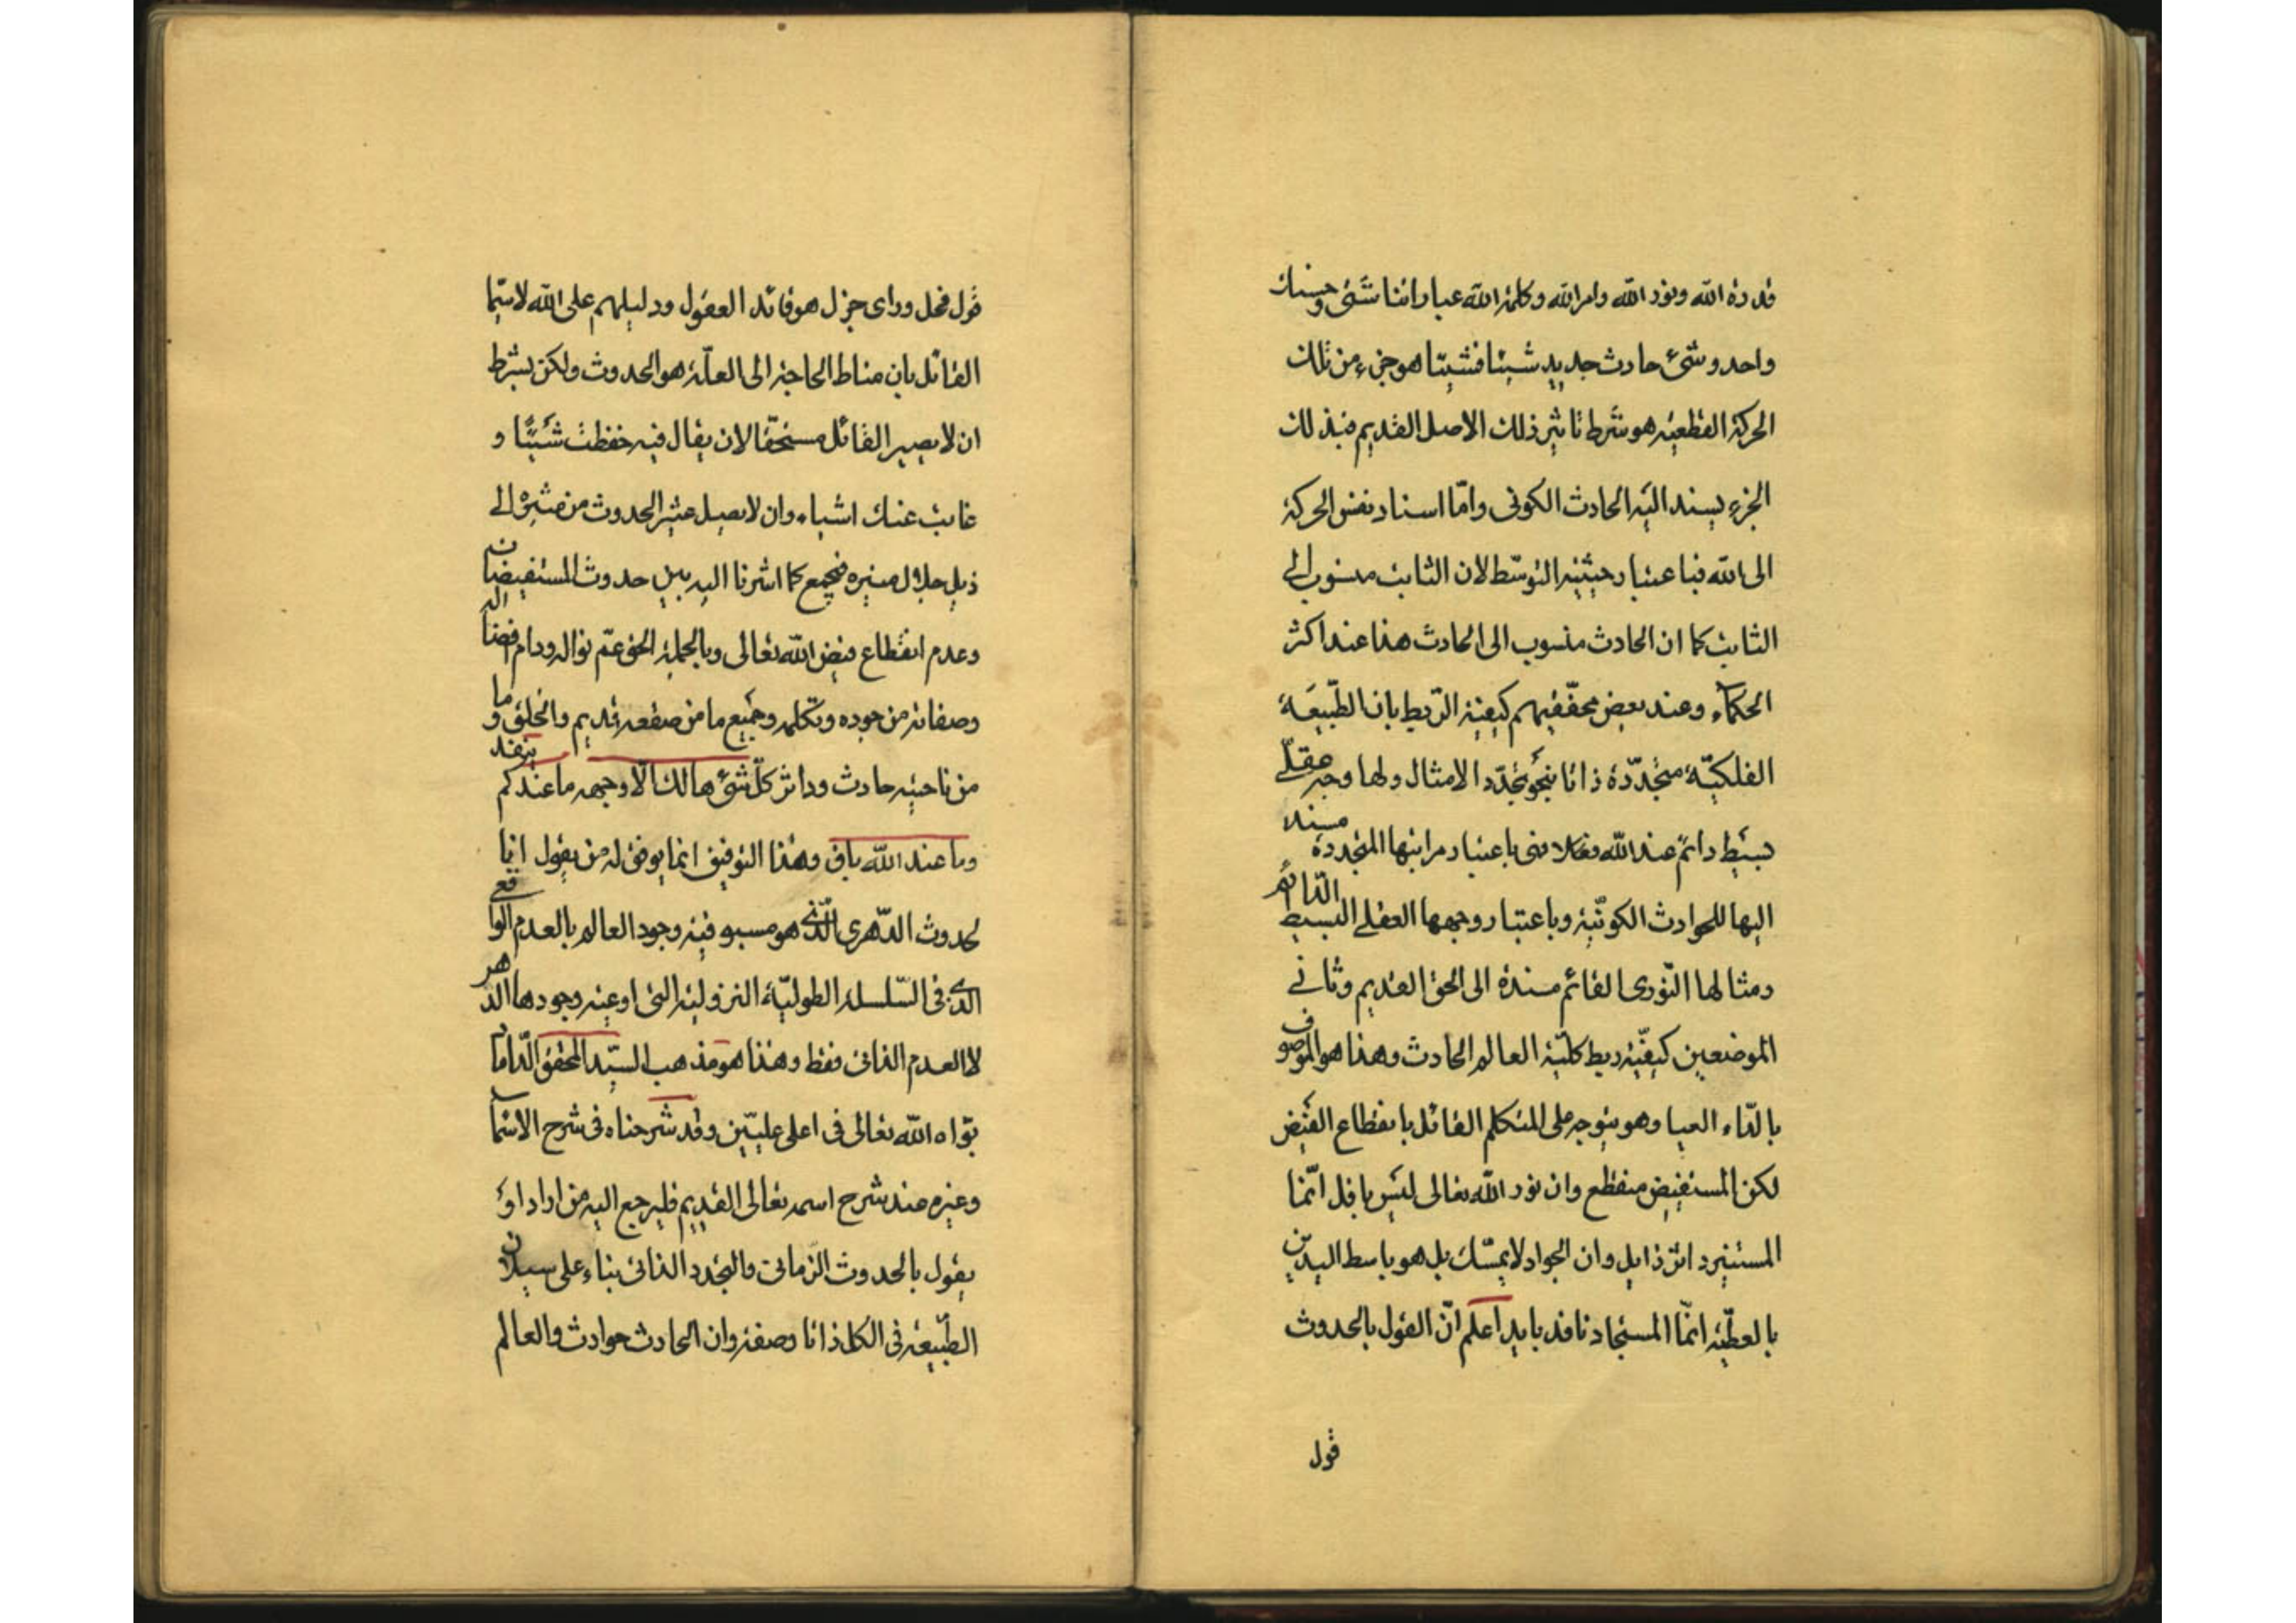 قدرة الله ونور الله وامر الله وكلمة الله عباراتنا شتى وحسنك
واحد وشئ حادث جديد شيئا فشيئا هو جزء من تلك
الحركة القطعية هو شرط تاثير ذلك الاصل القديم فبذلك
الجزء يسند اليه الحادث الكونى وامّا اسناد نفس الحركة
الى الله فباعتبار حيثية التوسّط لان الثابت منسوب الى
الثابت كما ان الحادث منسوب الى الحادث هذا عند اكثر
الحكماء وعند بعض محقّقيهم كيفية الربط بان الطّبيعة
الفلكيّة متجدّدة ذاتا بنحو تجدّد الامثال ولها وجه عقلّى
بسيط دائم عند الله فهى باعتبار مراتبها المتجددة مسند
اليها للحوادث الكونيّة وباعتبار وجهها العقلى البسيط الدّائم
ومثالها النّورى القائم مسندة الى الحق القديم وثانى
الموضعين كيفيّة ربط كليّة العالم الحادث وهذا هو الموصوف
بالدّاء العيا وهو يتوجه على المتكلم القائل بانقطاع الفيض
لكن المستفيض منقطع وان نور الله تعالى ليس بافل انّما
المستنير داثر ذايل وان الجواد لا يمسّك بل هو باسط اليدين
بالعطيّة انمّا المستجاد نافد بايد اعلم انّ القول بالحدوث
قول
قول فحل وراى جزل هو قائد العقول ودليلهم على الله لاسيّما
القائل بان مناط الحاجة الى العلّة هو الحدوث ولكن بشرط
ان لا يصير القائل مستحقّا لان يقال فيه حفظت شيئًا و
غابت عنك اشياء وان لا يصل عثير الحدوث من مثيره الى
ذيل جلال منيره فيجمع كما اشرنا اليه بين حدوث المستفيضات
وعدم انقطاع فيض الله تعالى وبالجملة الحق عمّ نواله ودام افضاله
وصفاته من جوده وتكلمه وجميع ما من صقعه قديم والخلق وما
من ناحيته حادث وداثر كلّ شئ هالك الّا وجهه ما عندكم ينفد
وما عند الله باق وهذا التوفيق انما يوفق له من يقول انا
لحدوث الدّهرى الّذى هو مسبوقية وجود العالم بالعدم الواقعى
الذى فى السّلسله الطوليّة النزولية التى اوعية وجودها الدهر
لا العدم الذاتى فقط وهذا هو مذهب السيّد المحقق الدّاماد
بوّاه الله تعالى فى اعلى عليّين وقد شرحناه فى شرح الاسماء
وغيره عند شرح اسمه تعالى القديم فليرجع اليه من اراد او
يقول بالحدوث الزمانى والتجدد الذاتى بناء على سيلان
الطّبيعة فى الكل ذاتا وصفة وان الحادث حوادث والعالم